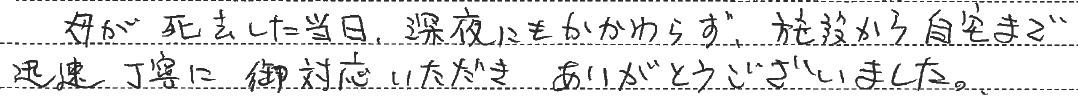 母が死去した当日、深夜にもかかわらず、施設から自宅まで
迅速丁寧に御対応いただきありがとうございました。